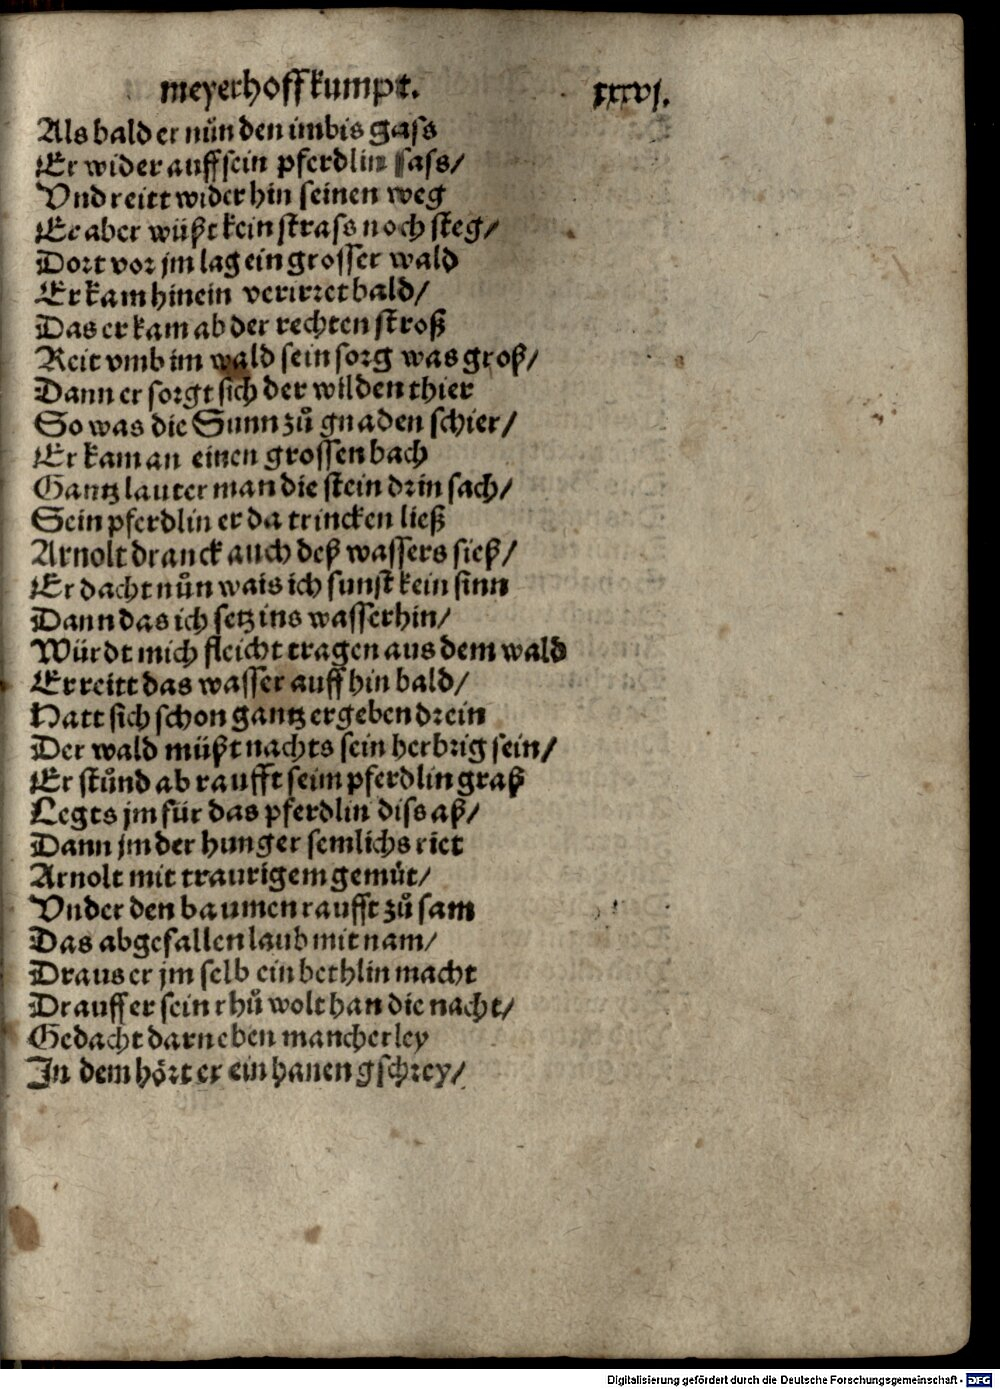 meyerhoff kumpt. xxxvj.
Als bald er nůn den imbis gass
Er wider auff sein pferdlin sass/
Vnd reitt wider hin seinen weg
Er aber wüßt kein strass noch steg/
Dort vor jm lag ein grosser wald
Er kam hinein verirret bald/
Das er kam ab der rechten stroß
Reit vmb im wald sein sorg was groß/
Dann er sorgt sich der wilden thier
So was die Sunn zů gnaden schier/
Er kam an einen grossen bach
Gantz lauter man die stein drin sach/
Sein pferdlin er da trincken ließ
Arnolt dranck auch deß wassers sieß/
Er dacht nůn wais ich sunst kein sinn
Dann das ich setz ins wasser hin/
Würdt mich fleicht tragen aus dem wald
Er reitt das wasser auff hin bald/
Hatt sich schon gantz ergeben drein
Der wald müßt nachts sein herbrig sein/
Er stůnd ab raufft seim pferdlin graß
Legts jm für das pferdlin diss aß/
Dann jm der hunger semlichs riet
Arnolt mit traurigem gemüt/
Vnder den baumen raufft zů sam
Das abgefallen laub mit nam/
Draus er jm selb ein bethlin macht
Drauff er sein rhů wolt han die nacht/
Gedacht darneben mancherley
In dem hört er ein hanen gschrey/
Digitalisierung gefördert durch die Deutsche Forschungsgemeinschaft - DFG